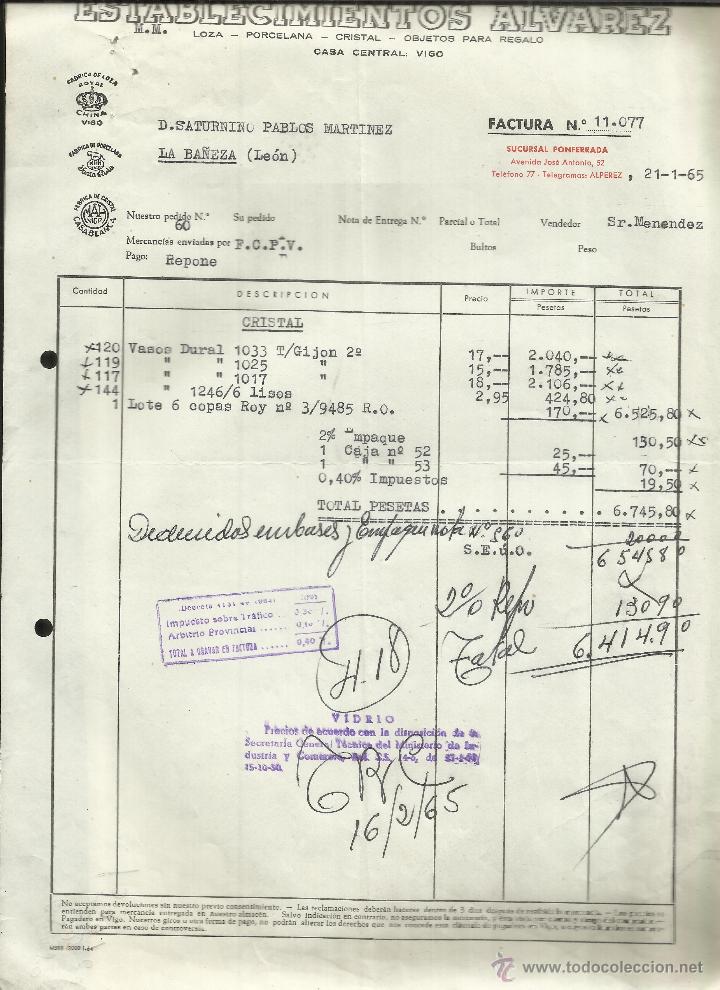 ESTABLECIMIENTOS ALVAREZ
M.M.
LOZA - PORCELANA - CRISTAL - OBJETOS PARA REGALO
CASA CENTRAL: VIGO
FABRICA DE LOZA
ROYAL
CHINA
VIGO
D.SATURNINO PABLOS MARTINEZ
LA BAÑEZA (León)
FACTURA N.º 11.077
SUCURSAL PONFERRADA
Avenida José Antonio, 52
Teléfono 77 - Telegramas: ALPEREZ , 21-1-65
FABRICA DE PORCELANA
FABRICA DE CRISTAL
CASABLANCA
Nuestro pedido N.º 60 Su pedido Nota de Entrega N.º Parcial o Total Vendedor Sr.Menendez
Mercancías enviadas por F.C.P.V. Bultos Peso
Pago: Repone
Cantidad DESCRIPCION Precio IMPORTE Pesetas TOTAL Pesetas
CRISTAL
120 Vasos Dural 1033 T/Gijon 2º 17,-- 2.040,--
119 " " 1025 " 15,-- 1.785,--
117 " " 1017 " 18,-- 2.106,--
144 " 1246/6 lisos 2,95 424,80
1 Lote 6 copas Roy nº 3/9485 R.O. 170,-- 6.525,80
2% Empaque 130,50
1 Caja nº 52 25,--
1 " " 53 45,-- 70,--
0,40% Impuestos 19,50
TOTAL PESETAS . . . . . . . . . . 6.745,80
Deducidos embases y Empaque nota Nº 860 20000
S.E.ú.O. 654580
2% Repo 13090
Total 6.41490
Impuesto sobre Tráfico ... 0,30 %
Arbitrio Provincial ...... 0,10 %
TOTAL A GRAVAR EN FACTURA ...... 0,40 %
H.18
VIDRIO
Precios de acuerdo con la disposición de la
Secretaría General Técnica del Ministerio de In-
dustria y Comercio,
15-10-50.
16/2/65
No aceptamos devoluciones sin nuestro previo consentimiento. — Las reclamaciones deberán hacerse dentro de 3 días
entienden para mercancía entregada en nuestro almacén. Salvo indicación en contrario, no aseguramos la mercancía,
Pagadero en Vigo. Nuestros giros u otra forma de pago, no podrán alterar los derechos que nos concede
rán ambas partes en caso de controversia.
www.todocoleccion.net